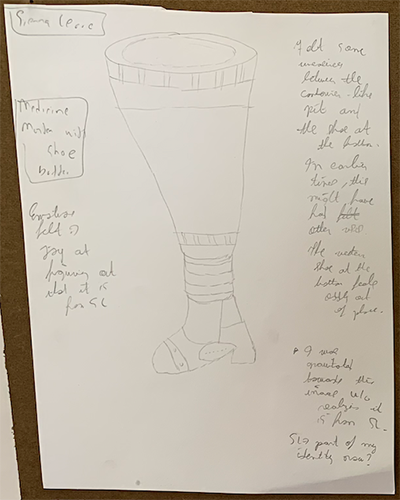 Sierra Leone
Medicine
Mortar with
Shoe
bottom
Emotions
felt is
joy at
figuring out
that it is
from SL
I did some
between the
container-like
pit and
the shoe at
the bottom.
In earlier
times, this
might have
had felt
other uses
The western
shoe at the
bottom feels
oddly out
of place.
I was
gravitated
towards this
image w/o
realizing it
is from SL.
SL a part of my
identity now?